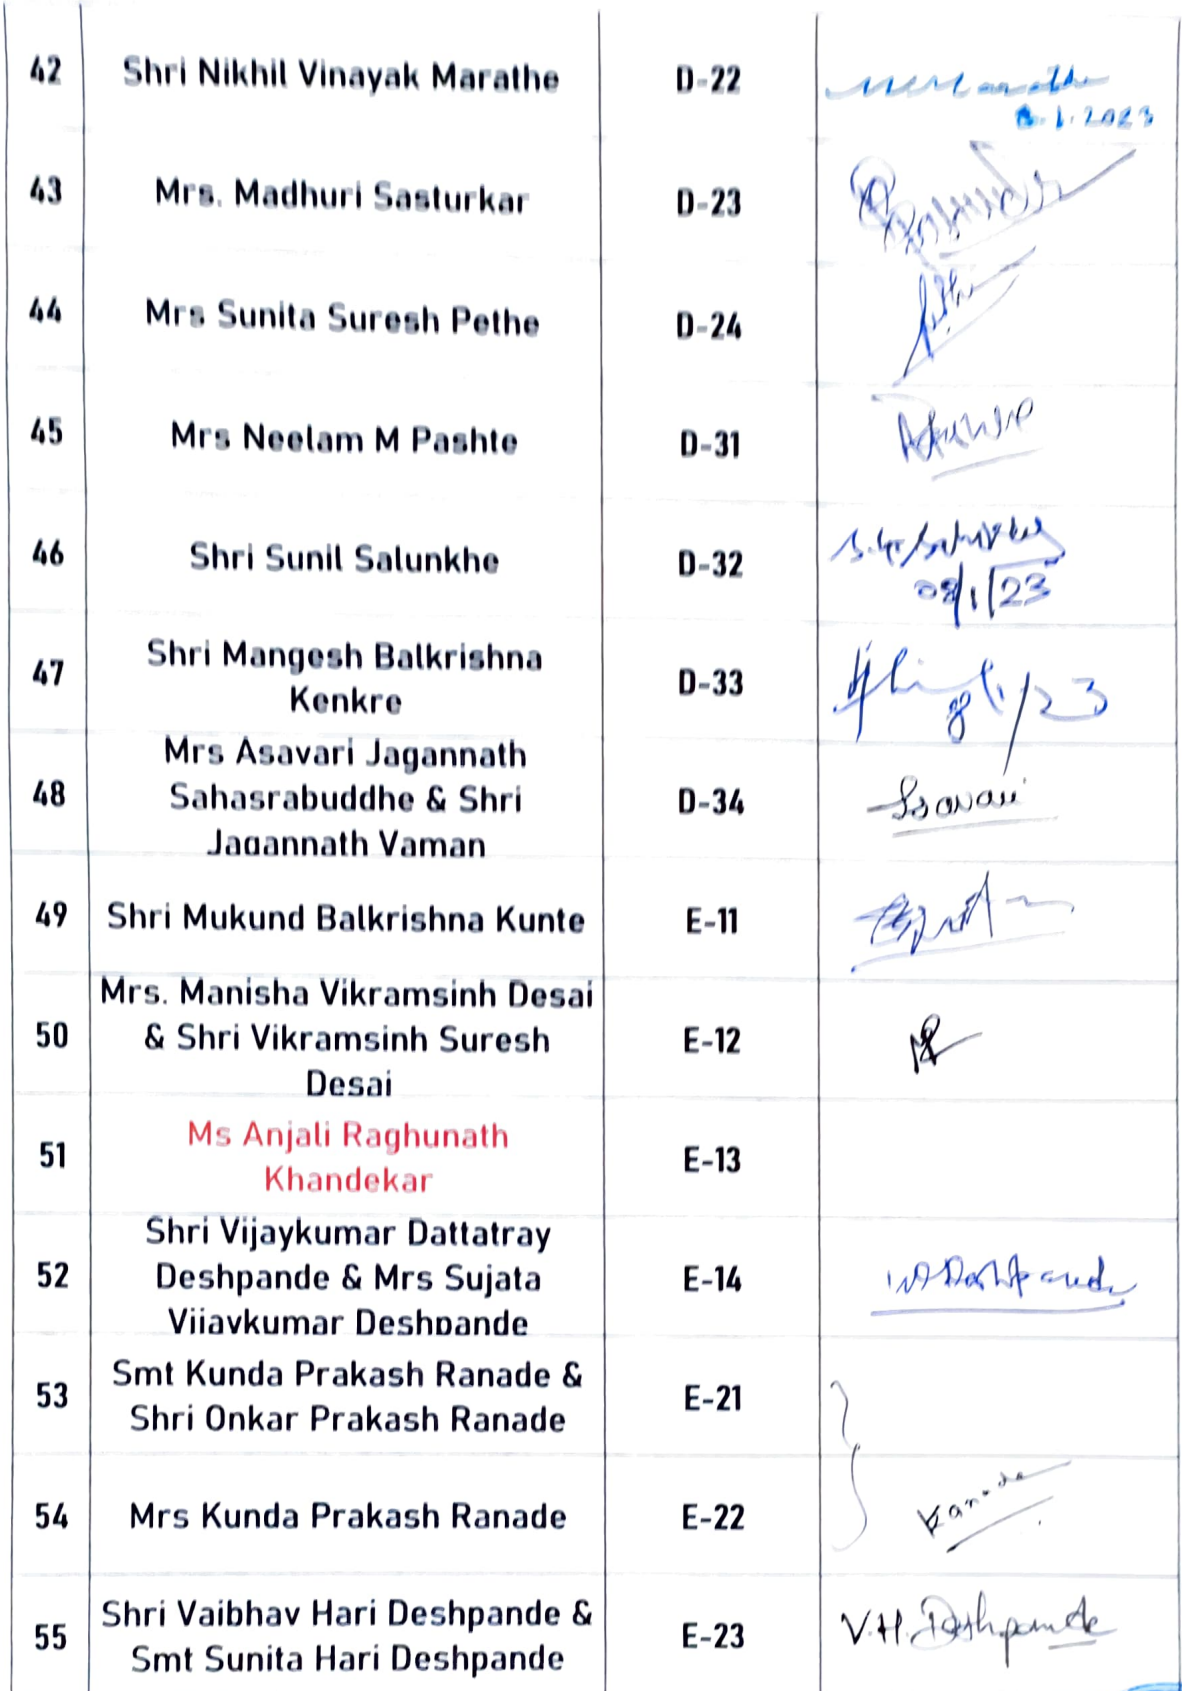 42 Shri Nikhil Vinayak Marathe D-22
8.1.2023
43 Mrs. Madhuri Sasturkar D-23
44 Mrs Sunita Suresh Pethe D-24
45 Mrs Neelam M Pashte D-31
46 Shri Sunil Salunkhe D-32
08/1/23
47 Shri Mangesh Balkrishna
Kenkre D-33
8/1/23
48 Mrs Asavari Jagannath
Sahasrabuddhe & Shri
Jagannath Vaman D-34 Asavari
49 Shri Mukund Balkrishna Kunte E-11
50 Mrs. Manisha Vikramsinh Desai
& Shri Vikramsinh Suresh
Desai E-12
51 Ms Anjali Raghunath
Khandekar E-13
52 Shri Vijaykumar Dattatray
Deshpande & Mrs Sujata
Vijaykumar Deshpande E-14 VDDeshpande
53 Smt Kunda Prakash Ranade &
Shri Onkar Prakash Ranade E-21
54 Mrs Kunda Prakash Ranade E-22 Ranade
55 Shri Vaibhav Hari Deshpande &
Smt Sunita Hari Deshpande E-23 V.H. Deshpande